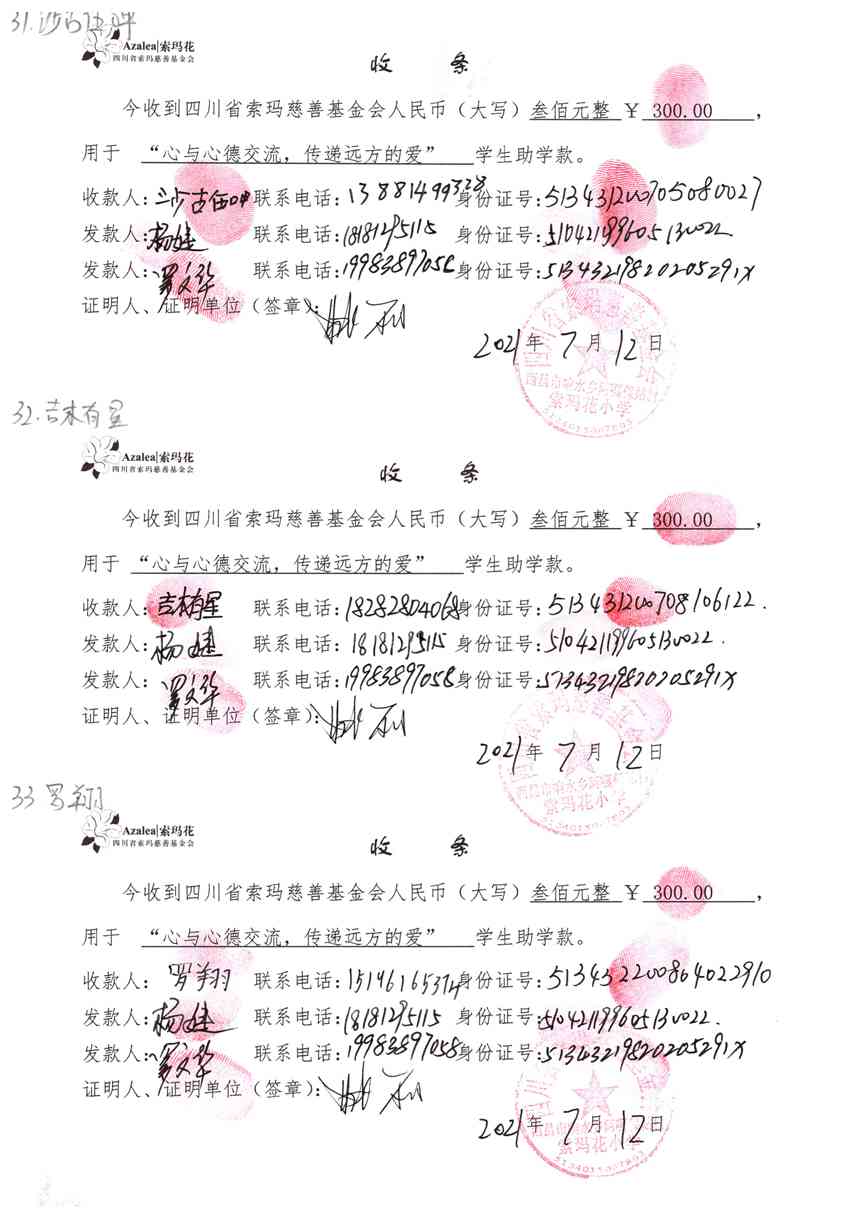 31.沙古伍呷
Azalea|索玛花
四川省索玛慈善基金会
收 条
今收到四川省索玛慈善基金会人民币（大写）叁佰元整 ￥ 300.00 ，
用于 “心与心德交流，传递远方的爱” 学生助学款。
收款人：沙古伍呷 联系电话：13881499328 身份证号：513431200705080027
发款人：杨婕 联系电话：18181295115 身份证号：510421199605130022
发款人：罗文华 联系电话：19983897058 身份证号：51343219820205291X
证明人、证明单位（签章）：
2021年 7月 12日
西昌市响水乡
索玛花小学
32.吉木有呈
Azalea|索玛花
四川省索玛慈善基金会
收 条
今收到四川省索玛慈善基金会人民币（大写）叁佰元整 ￥ 300.00 ，
用于 “心与心德交流，传递远方的爱” 学生助学款。
收款人：吉木有星 联系电话：18282804068 身份证号：513431200708106122.
发款人：杨婕 联系电话：18181295115 身份证号：510421199605130022.
发款人：罗文华 联系电话：19983897058 身份证号：51343219820205291X
证明人、证明单位（签章）：
2021年 7月 12日
西昌市响水乡
索玛花小学
33 罗翔
Azalea|索玛花
四川省索玛慈善基金会
收 条
今收到四川省索玛慈善基金会人民币（大写）叁佰元整 ￥ 300.00 ，
用于 “心与心德交流，传递远方的爱” 学生助学款。
收款人：罗翔 联系电话：15196165374 身份证号：513432200804022910
发款人：杨婕 联系电话：18181295115 身份证号：510421199605130022.
发款人：罗文华 联系电话：19983897058 身份证号：51343219820205291X
证明人、证明单位（签章）：
2021年 7月 12日
索玛花小学